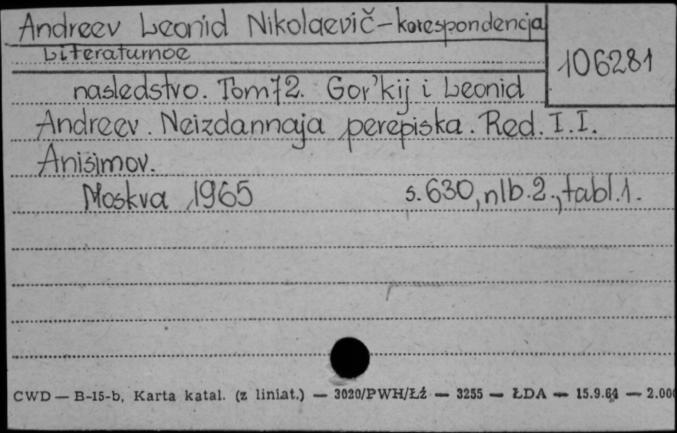 Andreev Leonid Nikolaevič - korespondencja
106281
Literaturnoe
nasledstvo. Tom 72. Gor'kij i Leonid
Andreev. Neizdannaja perepiska. Red. I. I.
Anisimov.
Moskva 1965 s. 630, nlb. 2., tabl. 1.
CWD — B-15-b, Karta katal. (z liniat.) — 3020/PWH/Łź — 3255 — ŁDA — 15.9.64 — 2.000